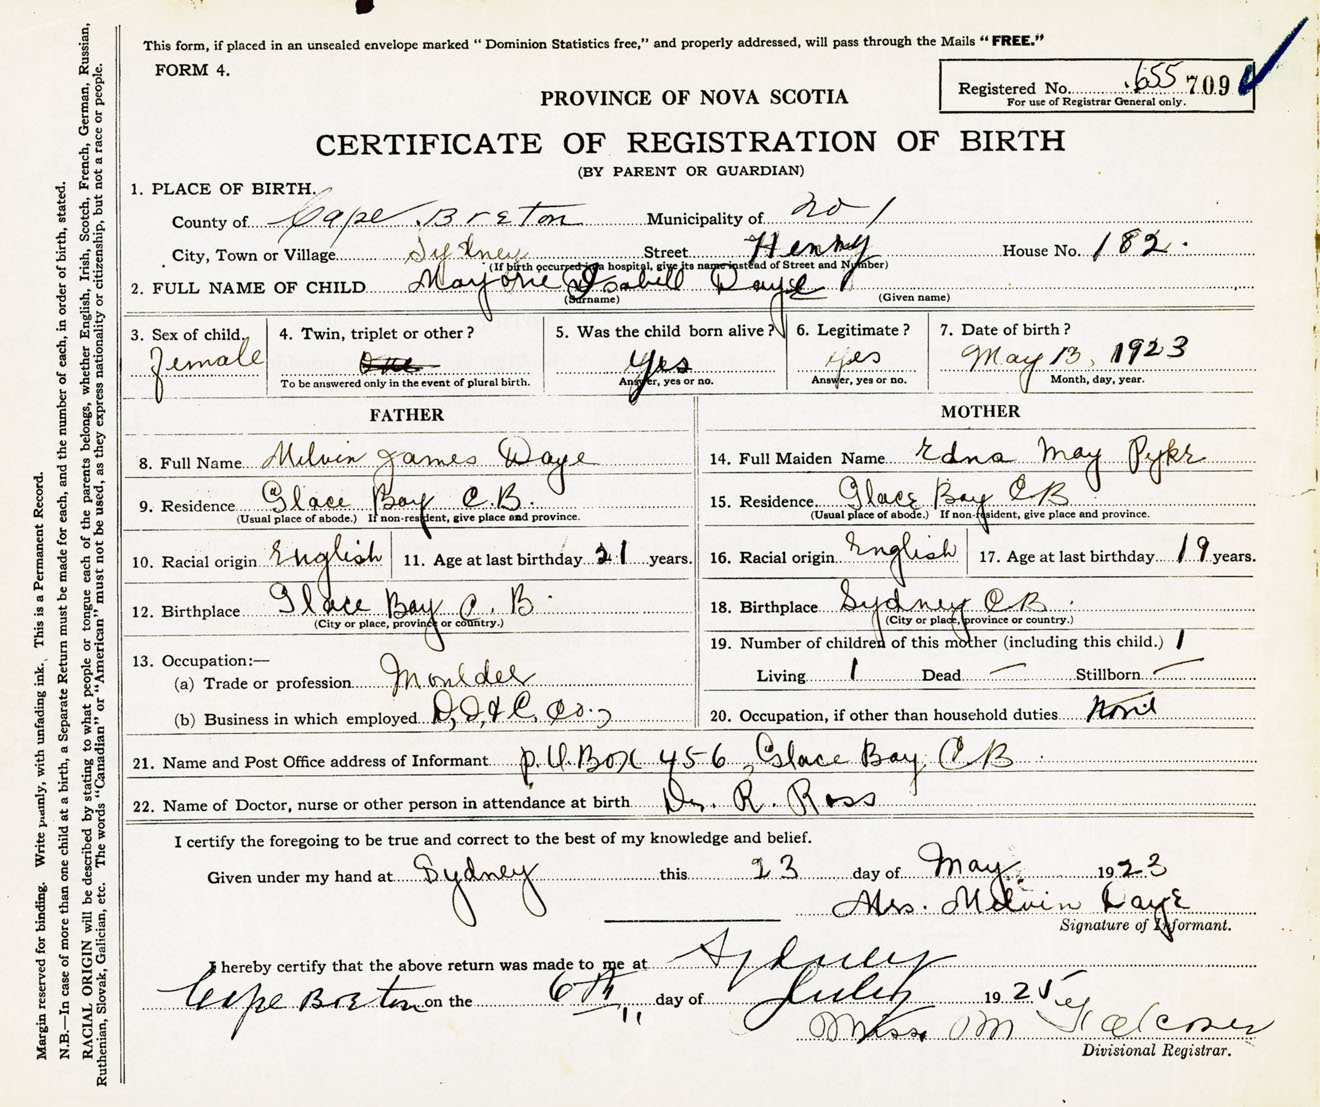 This form, if placed in an unsealed envelope marked "Dominion Statistics free," and properly addressed, will pass through the Mails "FREE."
FORM 4.
Registered No. 655 709
For use of Registrar General only.
PROVINCE OF NOVA SCOTIA
CERTIFICATE OF REGISTRATION OF BIRTH
(BY PARENT OR GUARDIAN)
1. PLACE OF BIRTH.
County of Cape Breton Municipality of No 1
City, Town or Village Sydney Street Henry House No. 182.
(If birth occurred in a hospital, give its name instead of Street and Number)
2. FULL NAME OF CHILD Marjorie Isabell Daye
(Surname) (Given name)
3. Sex of child female
4. Twin, triplet or other?
To be answered only in the event of plural birth.
5. Was the child born alive? Yes
Answer, yes or no.
6. Legitimate? yes
Answer, yes or no.
7. Date of birth? May 13, 1923
Month, day, year.
FATHER
8. Full Name Melvin James Daye
9. Residence Glace Bay C.B.
(Usual place of abode.) If non-resident, give place and province.
10. Racial origin English 11. Age at last birthday 21 years.
12. Birthplace Glace Bay C. B.
(City or place, province or country.)
13. Occupation:—
(a) Trade or profession Moulder
(b) Business in which employed D, I, & C, Co.,
MOTHER
14. Full Maiden Name Edna May Pyke
15. Residence Glace Bay CB
(Usual place of abode.) If non-resident, give place and province.
16. Racial origin English 17. Age at last birthday 19 years.
18. Birthplace Sydney CB.
(City or place, province or country.)
19. Number of children of this mother (including this child.) 1
Living 1 Dead — Stillborn —
20. Occupation, if other than household duties None
21. Name and Post Office address of Informant P.O. Box 456, Glace Bay, CB
22. Name of Doctor, nurse or other person in attendance at birth Dr. R. Ross
I certify the foregoing to be true and correct to the best of my knowledge and belief.
Given under my hand at Sydney this 23 day of May 1923
Mrs. Melvin Daye
Signature of Informant.
I hereby certify that the above return was made to me at Sydney
Cape Breton on the 6th day of July 1925
Miss M Falconer
Divisional Registrar.
Margin reserved for binding. Write plainly, with unfading ink. This is a Permanent Record.
N.B.—In case of more than one child at a birth, a Separate Return must be made for each, and the number of each, in order of birth, stated.
RACIAL ORIGIN will be described by stating to what people or tongue each of the parents belongs, whether English, Irish, Scotch, French, German, Russian,
Ruthenian, Slovak, Galician, etc. The words "Canadian" or "American" must not be used, as they express nationality or citizenship, but not a race or people.